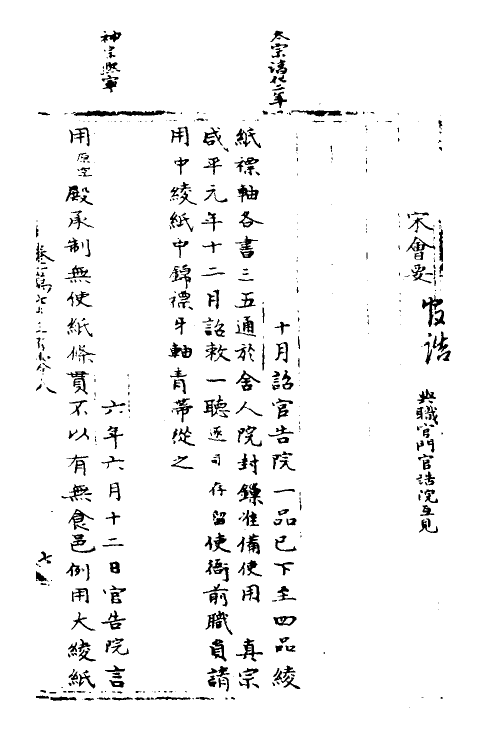 宋會要
官誥
與職官門官誥院互見
太宗淳化二年
十月詔官告院一品已下至四品綾
紙褾軸各書三五通於舍人院封鏁准備使用 真宗
咸平元年十二月詔敕一聽逐司存留使衙前職員請
用中綾紙中錦褾牙軸青蔕從之
神宗熙寧
六年六月十二日官告院言
用原空殿承制無使紙條貫不以有無食邑例用大綾紙
卷一萬七千三百
七